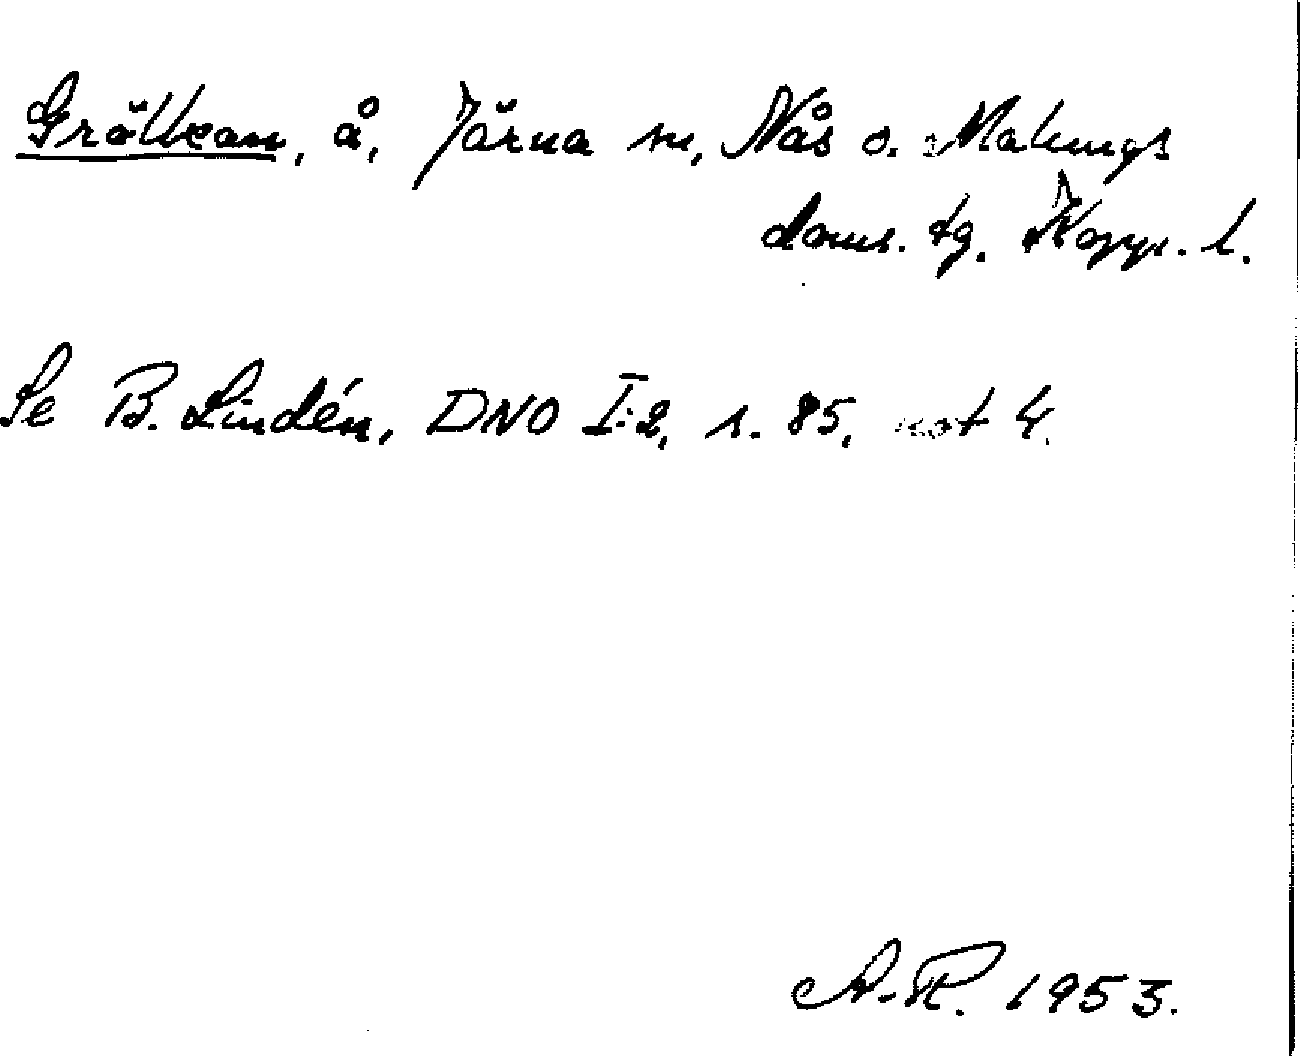 Grällean, å, Järna sn, Nås o. Malungs
doms. tg. Kopp. l.
Se B. Lindén, DNO I:2, s. 85, not 4.
A.R. 1953.